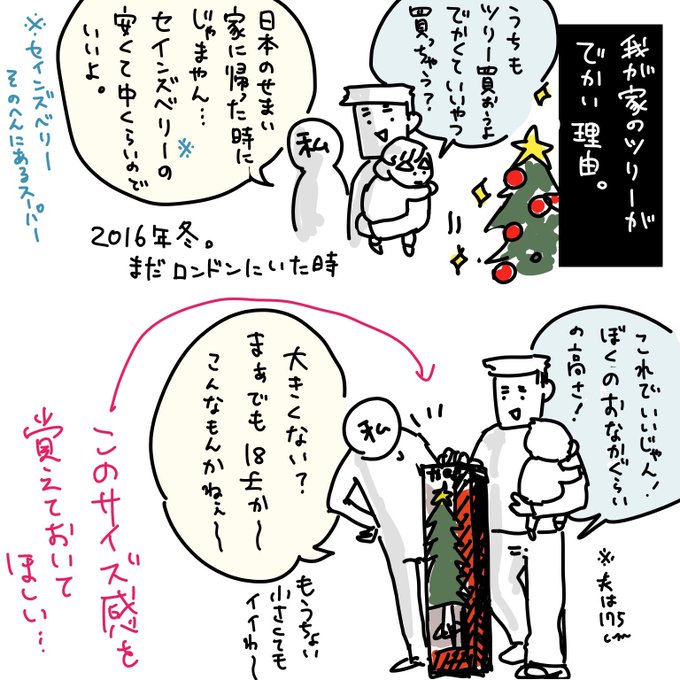 我が家のツリーが
でかい理由。
うちも
ツリー買おうよ
でかくていいやつ
買っちゃう？
日本のせまい
家に帰った時に
じゃまやん…
※
セインズベリーの
安くて中くらいので
いいよ。
※セインズベリー
そのへんにあるスーパー
私
2016年冬。
まだロンドンにいた時
これでいいじゃん！
ぼくのおなかぐらい
の高さ！
※夫は175
cm
私
大きくない？
まぁでも18£か〜
こんなもんかねぇ〜
もうちょい
小さくても
イイわ〜
このサイズ感を
覚えておいて
ほしい…